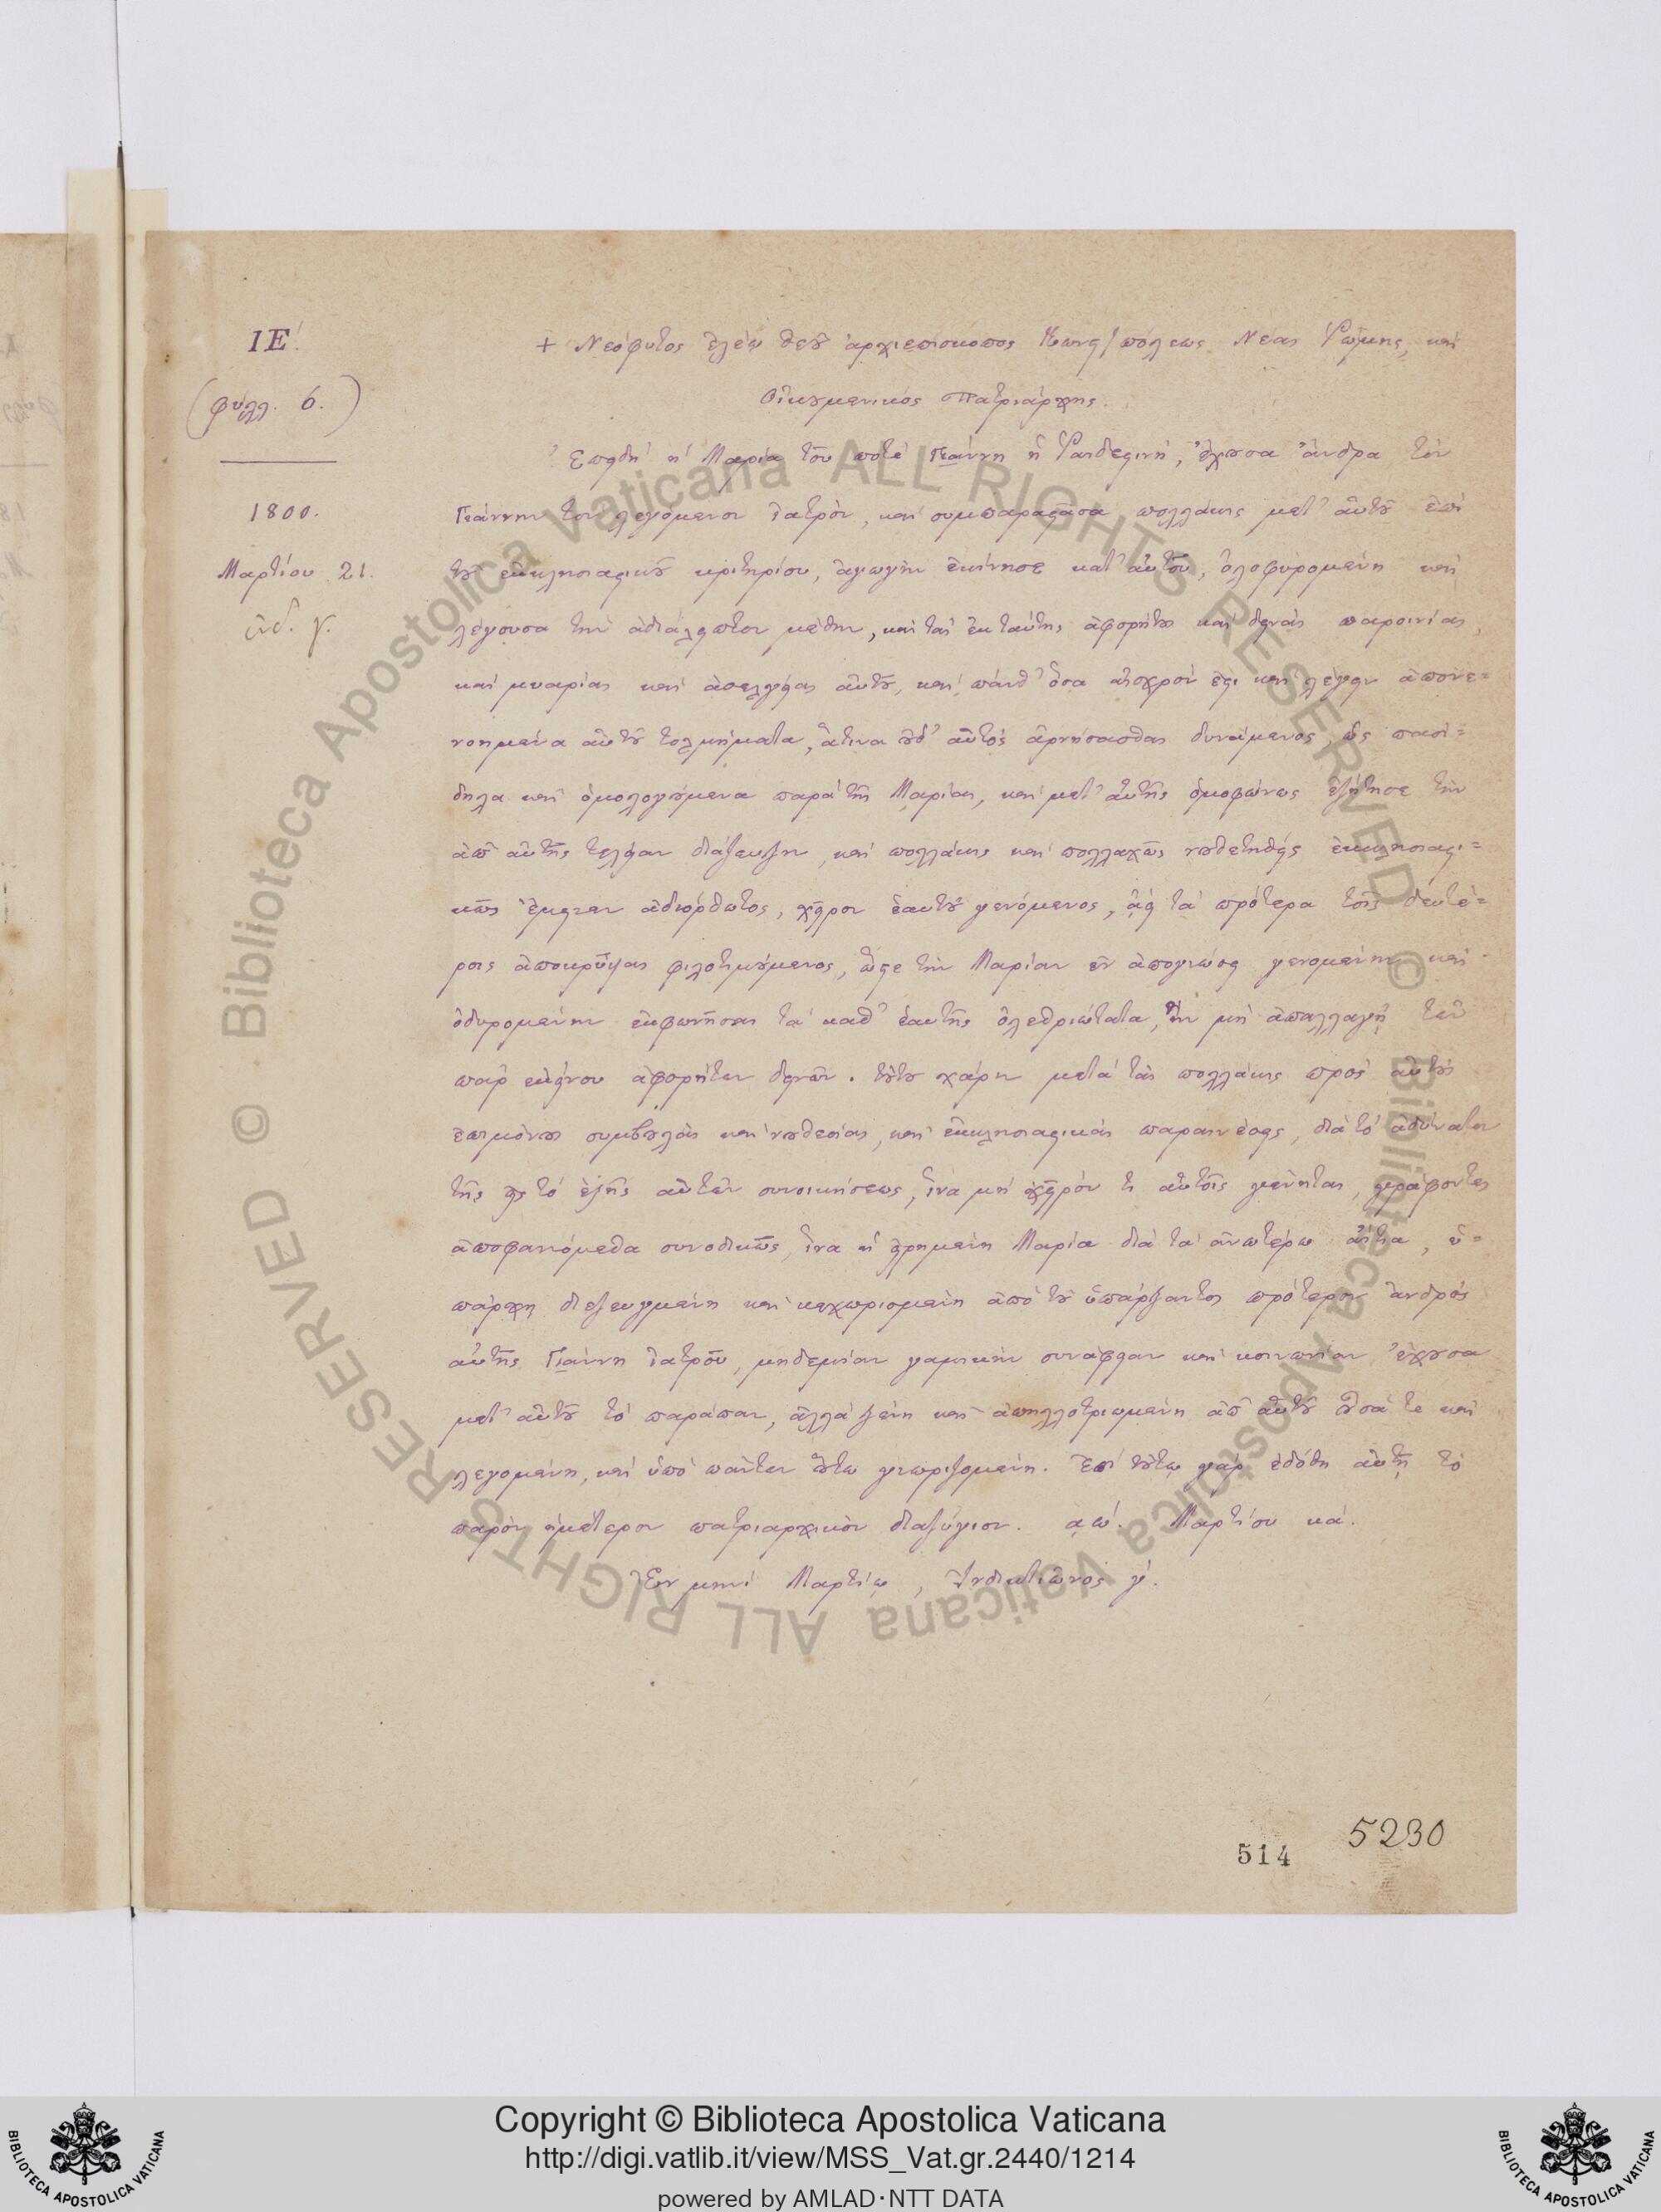 ΙΕ΄.
(φύλλ. 6.)
1800.
Μαρτίου 21.
ἰνδ. γ.
+ Νεόφυτος ἐλέῳ θεοῦ ἀρχιεπίσκοπος Κωνς/πόλεως Νέας Ῥώμης, καὶ
Οἰκουμενικὸς Πατριάρχης.
Ἐπειδὴ ἡ Μαρία τοῦ ποτὲ Γιάννη ἡ, ἔχουσα ἄνδρα τὸν
Γιάννην τὸν λεγόμενον ἰατρὸν, καὶ συμπαραστᾶσα πολλάκις μετ' αὐτοῦ ἐπὶ
τοῦ ἐκκλησιαστικοῦ κριτηρίου, ἀγωγὴν ἐκίνησε κατ' αὐτοῦ, ὀλοφυρομένη καὶ
λέγουσα τὴν ἀδιάλειπτον μέθην, καὶ τὰς ἐκ ταύτης ἀφορήτους καὶ δεινὰς παροινίας,
καὶ μιαρίας καὶ ἀσελγείας αὐτοῦ, καὶ πάνθ' ὅσα αἰσχρόν ἐστι καὶ λέγειν ἀπονε=
νοημένα αὐτοῦ τολμήματα, ἅτινα οὐδ' αὐτὸς ἀρνήσασθαι δυνάμενος, ὡς πασί=
δηλα καὶ ὁμολογούμενα παρὰ τῆς Μαρίας, καὶ μετ' αὐτῆς ὁμοφώνως ἐζήτησε τὴν
ἀπ' αὐτῆς τελείαν διάζευξιν, καὶ πολλάκις καὶ πολλαχῶς νουθετηθεὶς ἐκκλησιαστι=
κῶς ἔμεινεν ἀδιόρθωτος, χείρων ἑαυτοῦ γενόμενος, ἀεὶ τὰ πρότερα τοῖς δευτέ=
ροις ἀποκρύψαι φιλοτιμούμενος, ὥστε τὴν Μαρίαν ἐν ἀπογνώσει γενομένην καὶ
ὀδυρομένην ἐκφωνῆσαι τὰ καθ' ἑαυτῆς ὀλεθριώτατα, ἂν μὴ ἀπαλλαγῇ τῶν
παρ' ἐκείνου ἀφορήτων δεινῶν. τούτου χάριν μετὰ τὰς πολλάκις πρὸς αὐτοὺς
ἐπιμόνους συμβουλὰς καὶ νουθεσίας, καὶ ἐκκλησιαστικὰς παραινέσεις, διὰ τὸ ἀδύνατον
τῆς εἰς τὸ ἑξῆς αὐτῶν συνοικήσεως, ἵνα μὴ χεῖρόν τι αὐτοῖς γένηται, γράφοντες
ἀποφαινόμεθα συνοδικῶς, ἵνα ἡ εἰρημένη Μαρία διὰ τὰ ἀνωτέρω αἴτια, ὑ=
πάρχῃ διεζευγμένη καὶ κεχωρισμένη ἀπὸ τοῦ ὑπάρξαντος πρότερον ἀνδρὸς
αὐτῆς Γιάννη ἰατροῦ, μηδεμίαν γαμικὴν συνάφειαν καὶ κοινωνίαν ἔχουσα
μετ' αὐτοῦ τὸ παράπαν, ἀλλὰ ξένη καὶ ἀπηλλοτριωμένη ἀπ' αὐτοῦ οὖσά τε καὶ
λεγομένη, καὶ ὑπὸ πάντων οὕτω γνωριζομένη. Ἐπὶ τούτῳ γὰρ ἐδόθη αὐτῇ τὸ
παρὸν ἡμέτερον πατριαρχικὸν διαζύγιον. ͵αω΄. Μαρτίου κα΄.
Ἐν μηνὶ Μαρτίῳ, Ἰνδικτιῶνος γ΄.
514 5230
© Biblioteca Apostolica Vaticana ALL RIGHTS RESERVED © Biblioteca Apostolica Vaticana ALL RIGHTS RESERVED
Copyright © Biblioteca Apostolica Vaticana
http://digi.vatlib.it/view/MSS_Vat.gr.2440/1214
powered by AMLAD・NTT DATA
BIBLIOTECA APOSTOLICA VATICANA
BIBLIOTECA APOSTOLICA VATICANA